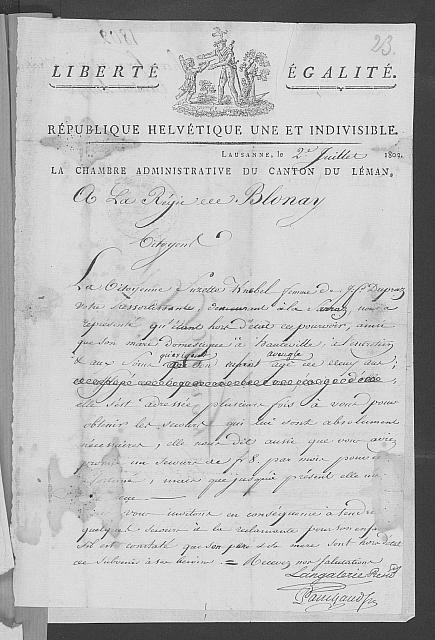 23.
LIBERTÉ ÉGALITÉ.
RÉPUBLIQUE HELVÉTIQUE UNE ET INDIVISIBLE.
LAUSANNE, le 2e Juillet 1802.
LA CHAMBRE ADMINISTRATIVE DU CANTON DU LÉMAN,
A La Régie de Blonay
Citoyens
La Citoyenne Suzette femme de Dupraz
Votre ressortissante, demeurant à la nous a
représenté qu'étant hors d'état de pouvoir, ainsi
que son mari domestique à hauteville, à l'entretien
& aux Soins qu'exige un enfant aveugle agé de deux ans,
elle s'est adressée plusieurs fois à vous pour
obtenir les secours qui lui sont absolument
nécessaires, elle nous dit aussi que vous avez
promis un Secours de f 8 par mois pour
mais que jusqu'à présent elle n'a
vous invitons en conséquence à tendre
quelque Secours à la reclamante pour son enfant
s'il est constaté que son père & sa mère sont hors d'état
de subvenir à ses besoins. = Recevez nos salutations
Langalerie Présid